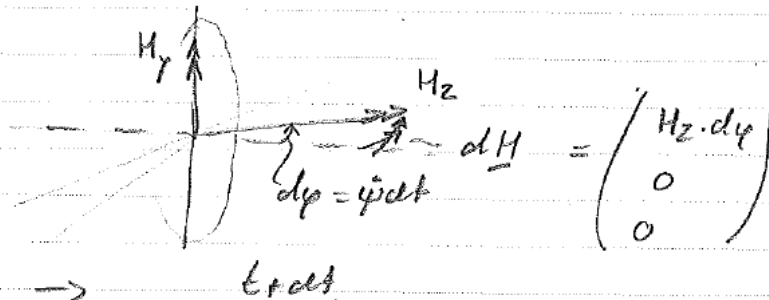 H_y
H_z
dH = ( H_z · dφ
0
0 )
dφ = φ̇dt
→ t + dt